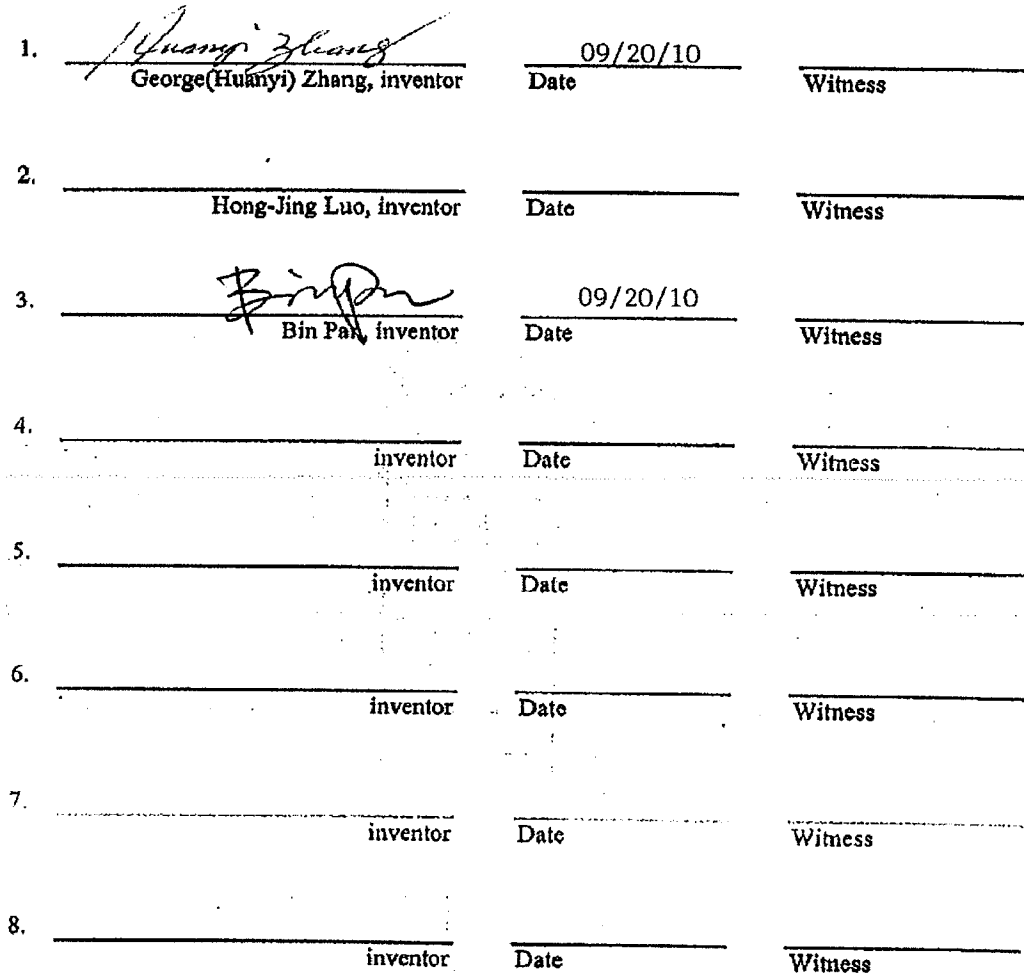 1. Huanyi Zhang 09/20/10
George(Huanyi) Zhang, inventor Date Witness
2.
Hong-Jing Luo, inventor Date Witness
3. Bin Pan 09/20/10
Bin Pan, inventor Date Witness
4.
inventor Date Witness
5.
inventor Date Witness
6.
inventor Date Witness
7.
inventor Date Witness
8.
inventor Date Witness